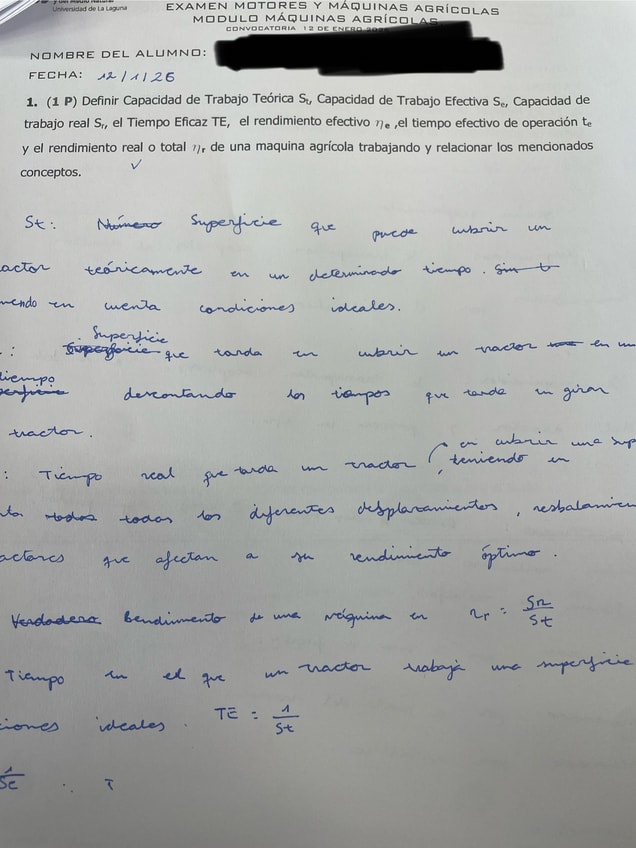 y del Medio Natural
Universidad de La Laguna
EXAMEN MOTORES Y MÁQUINAS AGRÍCOLAS
MODULO MÁQUINAS AGRÍCOLAS
CONVOCATORIA 12 DE ENERO
NOMBRE DEL ALUMNO:
FECHA: 12/1/26
1. (1 P) Definir Capacidad de Trabajo Teórica St, Capacidad de Trabajo Efectiva Se, Capacidad de
trabajo real Sr, el Tiempo Eficaz TE, el rendimiento efectivo ηe ,el tiempo efectivo de operación te
y el rendimiento real o total ηr de una maquina agrícola trabajando y relacionar los mencionados
conceptos.
St: Número Superficie que puede cubrir un
actor teóricamente en un determinado tiempo. Sin t
niendo en cuenta condiciones ideales.
Superficie
: Superficie que tarda en cubrir un tractor en un
tiempo descontando los tiempos que tarda en girar
tractor.
: Tiempo real que tarda un tractor en cubrir una sup
, teniendo en
ta todos todos los diferentes desplazamientos, resbalamien
actores que afectan a su rendimiento óptimo.
Verdadera Rendimiento de una máquina en ηr = Sr/St
Tiempo en el que un tractor trabaja una superficie
ciones ideales. TE = 1/St
1/Se . T